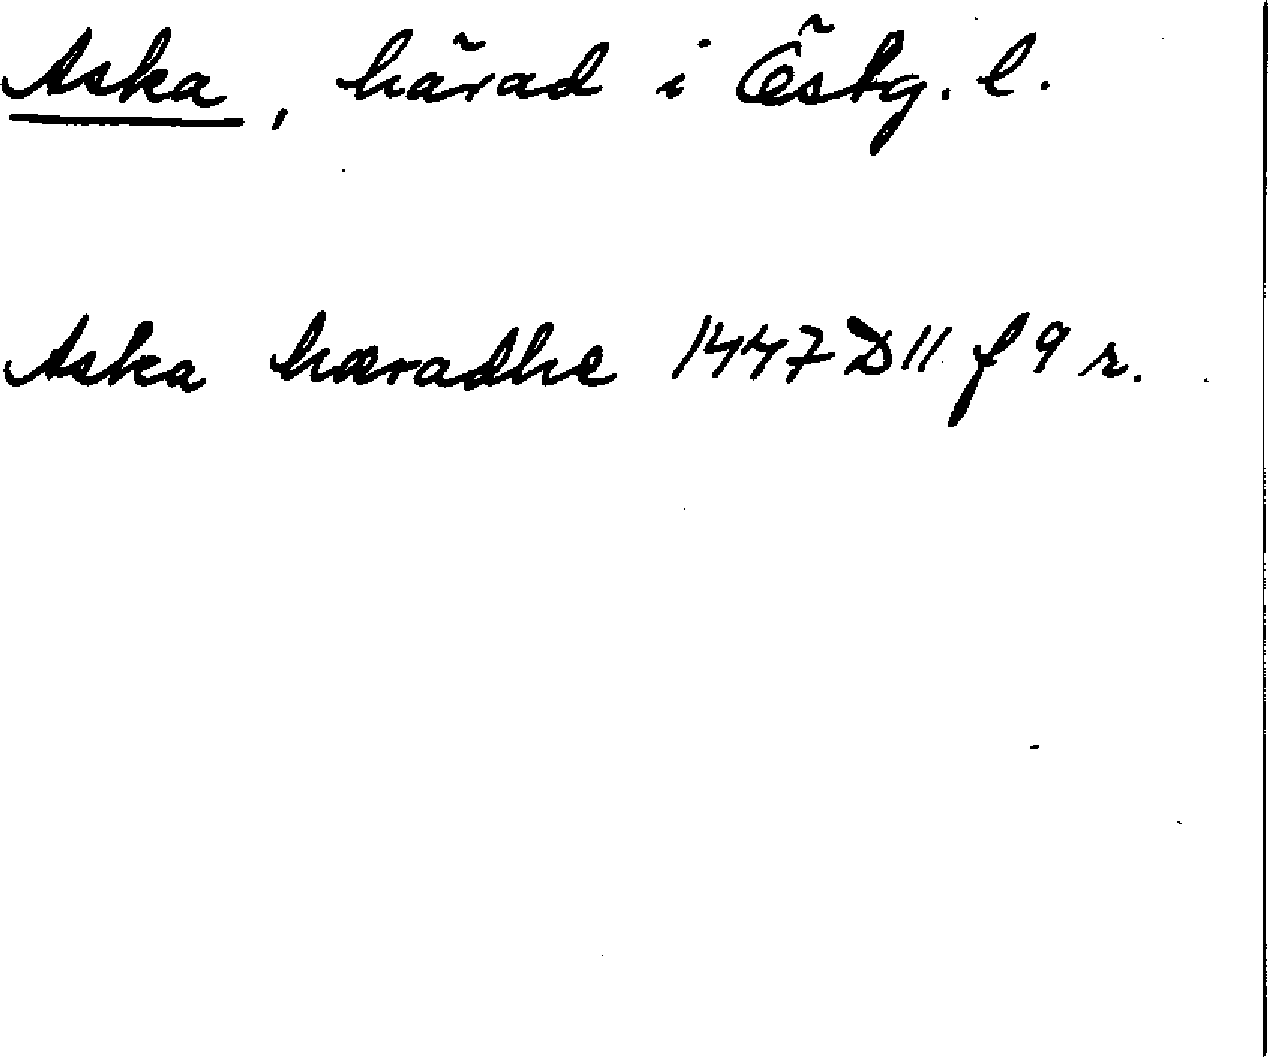 Aska, härad i Östg. l.
Aska hæradhe 1447 D 11 f 9 r.